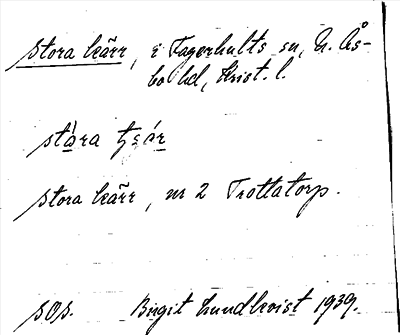 Stora kärr, i Fagerhults sn, N. Ås-
bo hd, Krist. l.
stora kärr, nr 2 Trottatorp.
SOS. Birgit Lundkvist 1939.